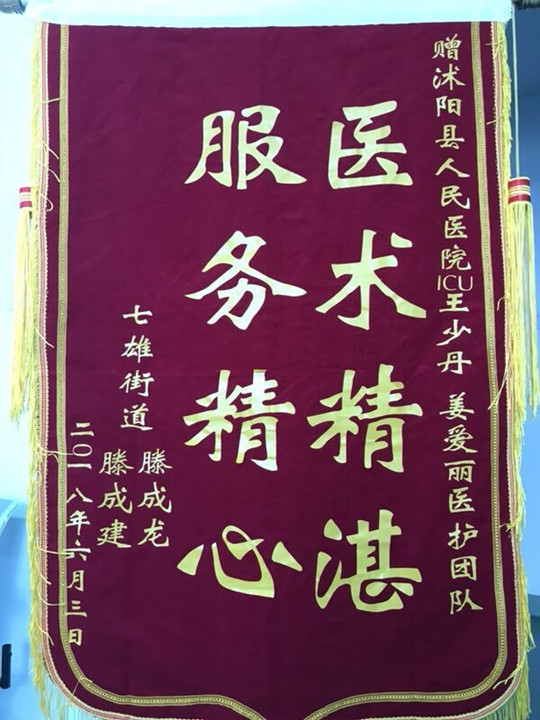 赠沭阳县人民医院ICU王少丹 姜爱丽医护团队
医术精湛
服务精心
七雄街道 滕成龙
滕成建
二〇一八年六月三日